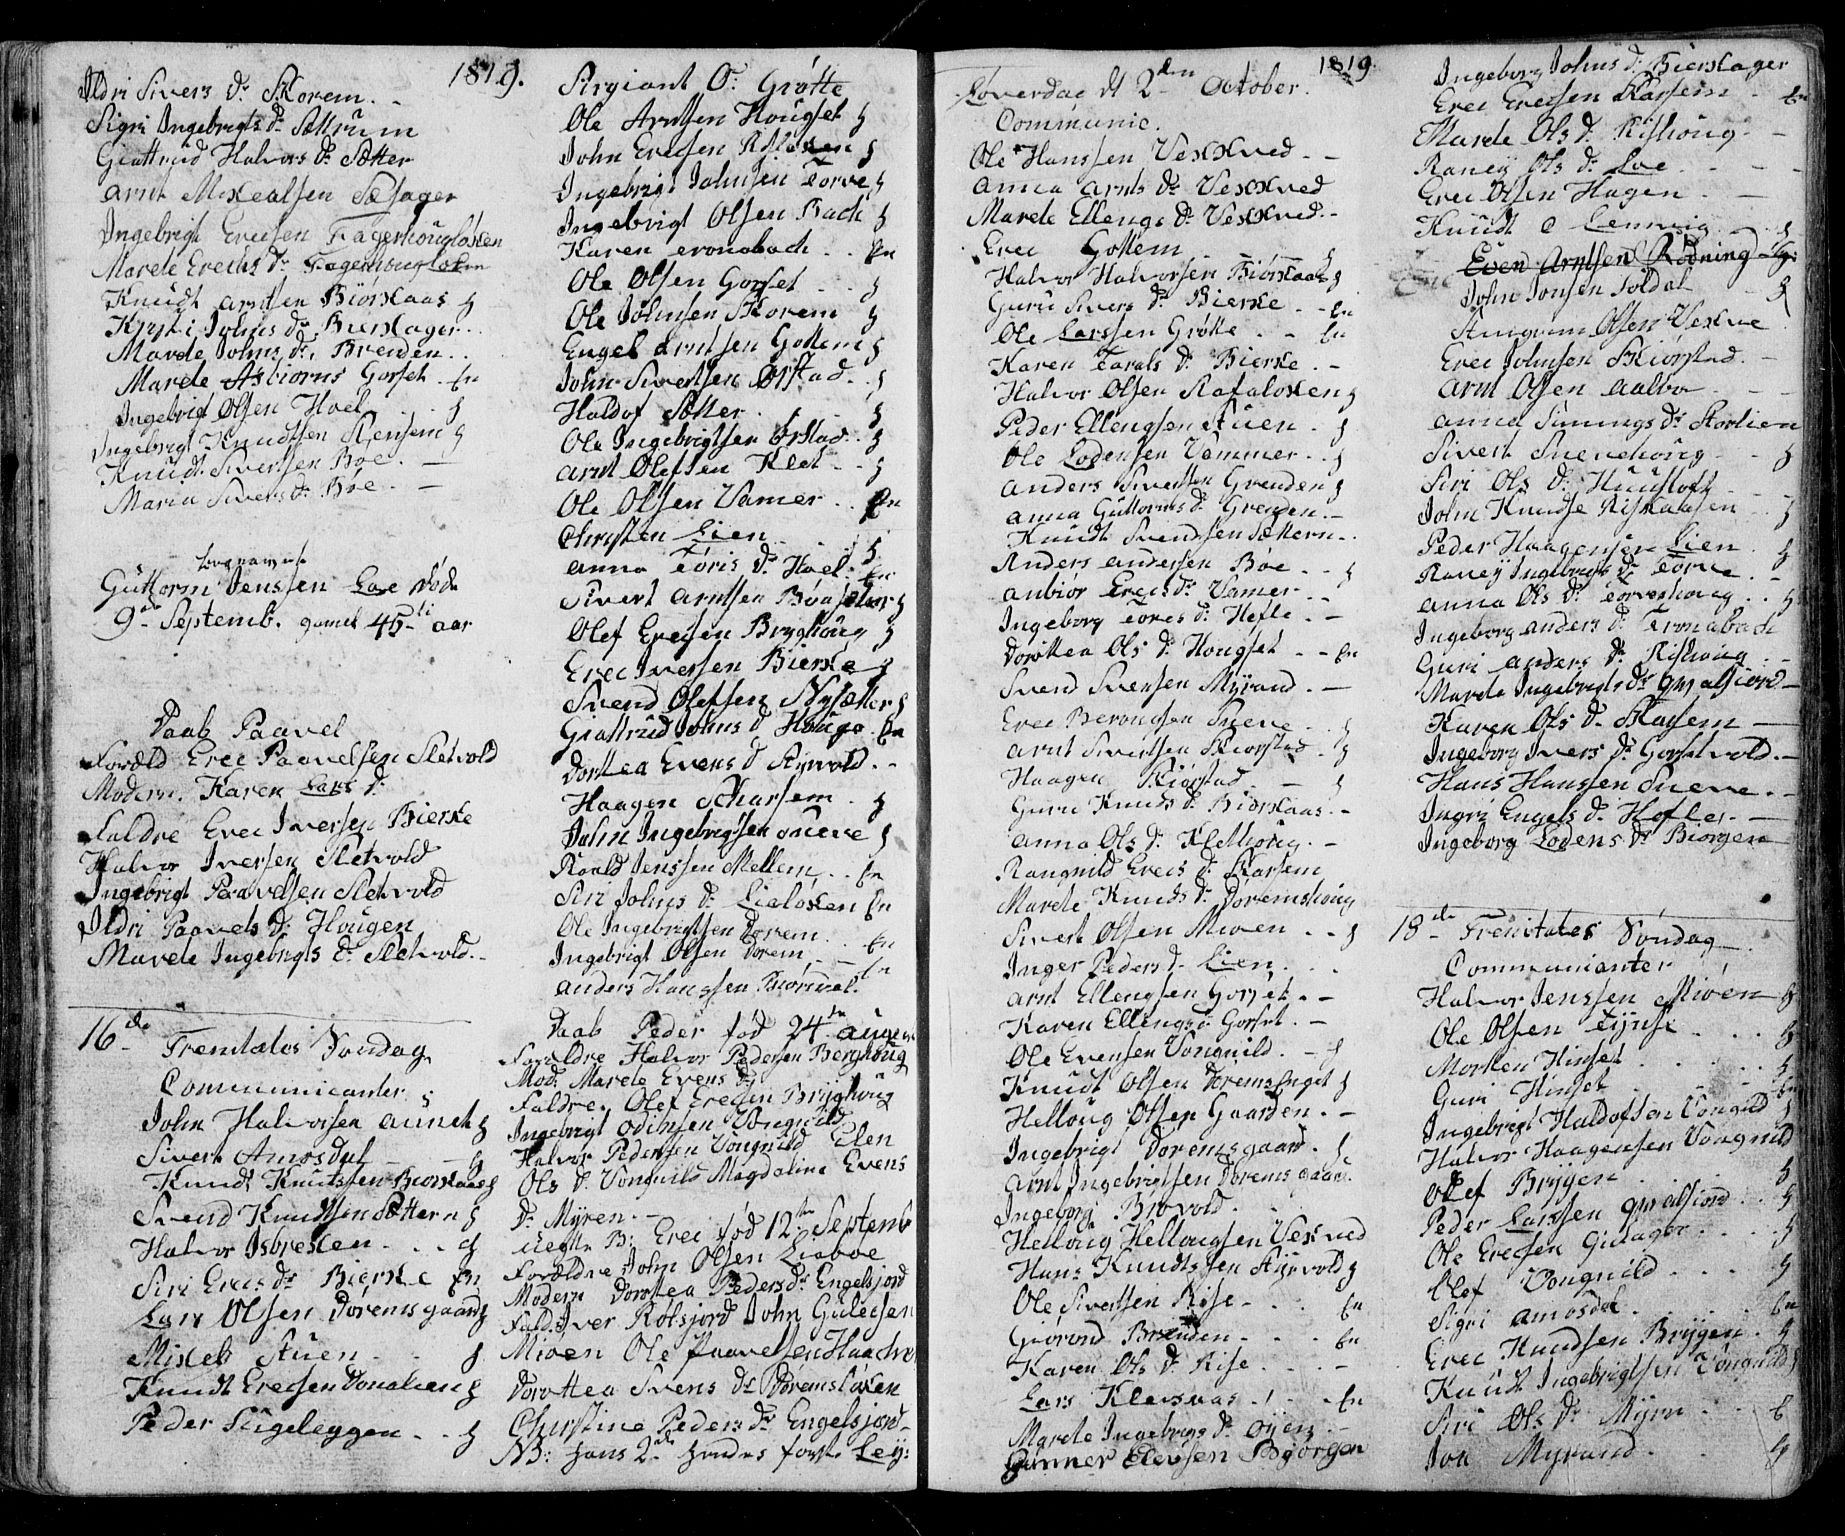 1819.
Ildri Sivers Dr Skorem. -
Sigri Ingebrigts Dr Sættrum
Giattrud Halvors Dr Sætter
Arnt Mikealsen Sæsager
Ingebrigt Erecsen Fagerhougløken
Marete Erechs Dr Fagerhougløken
Knudt Arntsen Biørkaas
Kirsti Johns Dr Bierkager. .
Marete Johns Dr Brenden. .
Marete Asbiorns Gorset. En
Ingebrigt Olsen Hoel
Ingebrigt Knudtsen Stensem
Knudt Sivertsen Boe. -
Maria Sivers Dr Boe. -
Guttorm Jenssen Loe Døde
9de Septemb. gamel 45 aar
Daab Paavel
Foræld Erec Paavelsen Sletvold
Modern. Karen Lars Dr
Faldre Erec Iversen Bierke
Halvor Iversen Sletvold
Ingebrigt Paavelsen Sletvold
Ildri Paavels Dr Hougen
Marete Ingebrigts Dr Sletvold. -
16de Trenitates Søndag
Communicanter
John Halvorsen Aunet
Sivert Amosdal
Knudt Knutssen Biorkaas
Svend Knudtsen Sættern
Halvor Isbrekken
Siri Erecs Dr Bierke En
Lars Olsen Doremsgaard
Mikel Stuen
Knudt Erecsen Donalien
Peder Stigeleggen
Sergiant O: Grøtte
Ole Arntsen Hougset
John Erecsen Røløken
Ingebrigt Johnsen Torve
Ingebrigt Olsen Bach
Karen Cronabach . . En
Ole Olsen Gorset
Ole Johnsen Skorem
Engel Arntsen Gottem
John Sivertsen Ørstad
Haldof Sætter
Ole Ingebrigtsen Ørstad
Arnt Olefsen Klet
Ole Olsen Vamer . En
Christen Lien
Anna Toris Dr Hoel. En
Sivert Arntsen
Olef Erecsen Bryghoug
Erec Iversen Bierke
Svend Olefsen Nysætter
Giattrud Johns D Houge. En
Dorttea Evens D Styrvold. -
Haagen Skarsem
John Ingebrigtsen Sneve
Roald Jenssen Mellem. . En
Siri Johns Dr Lieløken En
Ole Ingebrigtsen Dorem.
Ingebrigt Olsen Dorem. - En
Anders Hanssen En
Daab Peder fød 24de Augu
Foraldre Halvor Pedersen Berghoug
Mod: Marete Evens Dr
Faldre. Olef Erecsen Bryghoug
Ingebrigt Odinsen Vongnild
Halvor Pedersen Vongnild Elen
Ols Dr Vongnild Magdalina Evens
Dr Myren. -
uegte B: Erec fød 12te Septemb
Foraldre John Olsen Lieboe
Modern Dorttea Peders Dr Engelsjord
Fald. Iver Rotsjord John Gulecsen
Mioen Ole Paavelsen Haaker
Dorottea Svens Dr Doremsløken
Christine Peders Dr Engelsjord.
NB: Hans 2de Hendes første Ley:
1819.
Løverdag d 2den October.
Communic.
Ole Hanssen Vekkved. -
Anna Arnts Dr Vekkved
Marete Ellengs Dr Vekkved. -
Erec Gottem
Halvor Halvorsen Biørkaas
Guru Sivers Dr Bierke. - En
Ole Larssen Grøtte. - En
Karen Tarals Dr Bierke. -
Halvor Olsen Stafaløken
Peder Ellengsen Stuen.
Ole Lodensen Vammer. .
Anders Sivertsen Grenden
Anna Guttorms Dr Grenden. -
Knudt Svendsen Sættern. .
Anders Andersen Boe. .
Anbior Erecs Dr Vamer. .
Ingeborg Tores Dr Hefle. -
Dorottea Ols Dr Hougset. - En
Svend Svensen Myrand. -
Erec Berongsen Sneve.
Arnt Sivertsen Skiorstad
Haagen Skiorstad
Guru Knuds Dr Biorkaas. -
Anna Ols Dr Klethoug. -
Rangnild Erecs Dr Skarsem
Marete Knuds Dr Doremshoug
Sivert Olsen Mioen
Inger Peders Dr Lien. . .
Arnt Ellengsen Gorset. . -
Karen Ellengs D Gorset. . -
Ole Evensen Vongnild.
Knudt Olsen Doremsenget
Helloug Olsen Gaarden. -
Ingebrigt Doremsgaard.
Arnt Ingebrigtsen Doremsgaard.
Ingeborg Biøvold.
Helloug Hellougsen Vekved
Hans Knudtssen Styrvold
Ole Sivertsen Rise. - . En
Giørond Brenden. - - . En
Karen Ols Dr Rise. -
Lars Kleveaas. . . En
Marete Ingebrigts Dr Øyen. -
Gunner Elevsen Bjorgen
Ingeborg Johns Dr Bierkager
Erec Erecsen Skarsem. En
Marete Ols Dr Rishoug. -
Raney Ols Dr Loe. - - -
Erec Olsen Hagen. -
Knudt O Lemvig
Even Arntsen Rodning
John Jonsen Soldat
Anguum Olsen Vekve.
Erec Johnsen Skiørstad. -
Arnt Olsen Aalbo
Anna Simings Dr Storlien
Sivert Snevehoug
Siri Ols Dr Huusloft.
John Knudse Riskaasen
Peder Haagensen Lien
Raney Ingebrigts Dr Torve. -
Anna Ols Dr Torveshoug
Ingeborg Anders Dr Cronabach
Guri Anders Dr Rishoug
Marete Ingebrigts Dr Qvalsiord -
Karen Ols Dr Skarsem -
Ingeborg Ivers Dr Gorsetvold. -
Hans Hanssen Sneve. -
Ingri Engels Dr Hefle. -
Ingeborg Lodens Dr Biorgen
18de Trenitates Søndag
Communianter
Halvor Jenssen Mioen
Ole Olsen Tynse
Morten Hinset
Guri Hinset En
Ingebrigt Haldofsen Vongnild
Halvor Haagensen Vongnild
Olef Bryggen
Peder Larssen Qvalsiord
Ole Erecsen Gulager
Olef Vongnild
Sigri Amosdal En
Erec Knudsen Bryggen
Knudt Ingebrigtsen Vongnild
Siri Ols Dr Myrn
Jon Myrand